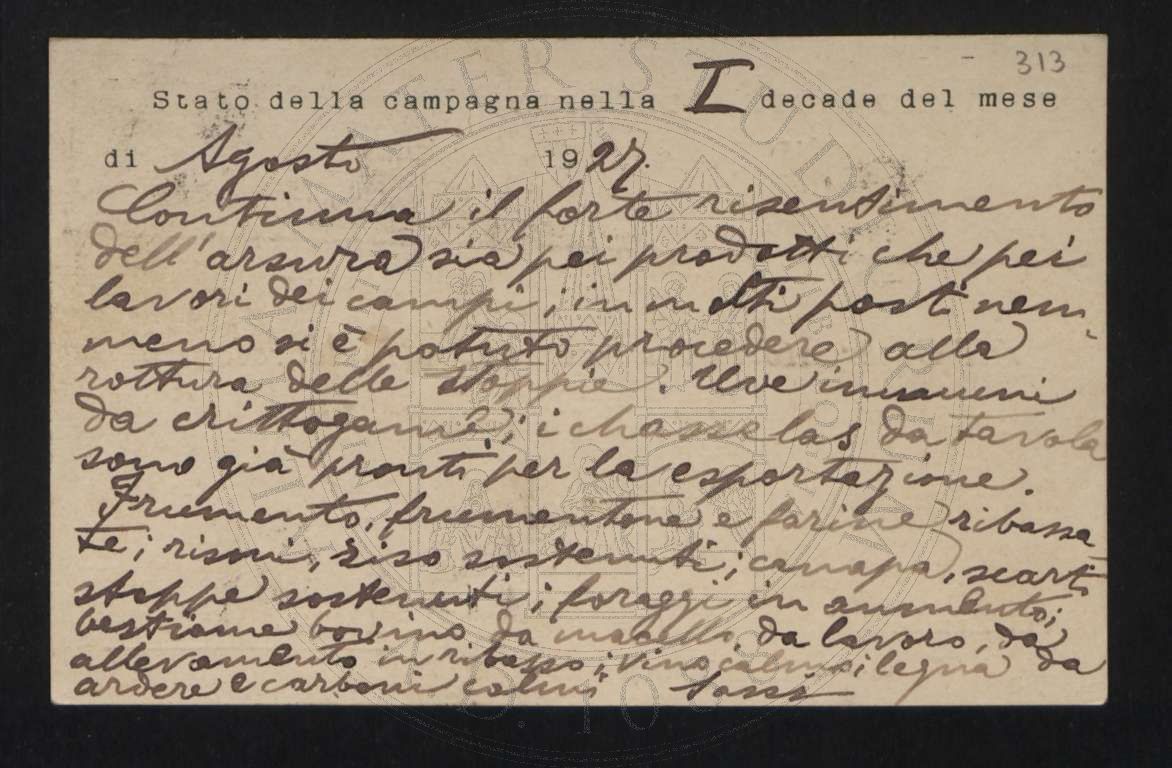 313
Stato della campagna nella I decade del mese
di Agosto 1927.
Continua il forte risentimento
dell'arsura sia pei prodotti che pei
lavori dei campi; in molti posti nem-
meno si è potuto procedere alla
rottura delle stoppie. Uve immuni
da crittogame; i chasselas da tavola
sono già pronti per la esportazione.
Frumento, frumentone e farine ribassa-
te; risoni, riso sostenuti; canapa, scarti
stoppe sostenuti; foraggi in aumento;
bestiame bovino da macello, da lavoro, da
allevamento in ribasso; vino calmo; legna da
ardere e carboni calmi Sassi
ALMA MATER STUDIORUM
A.D. 1088